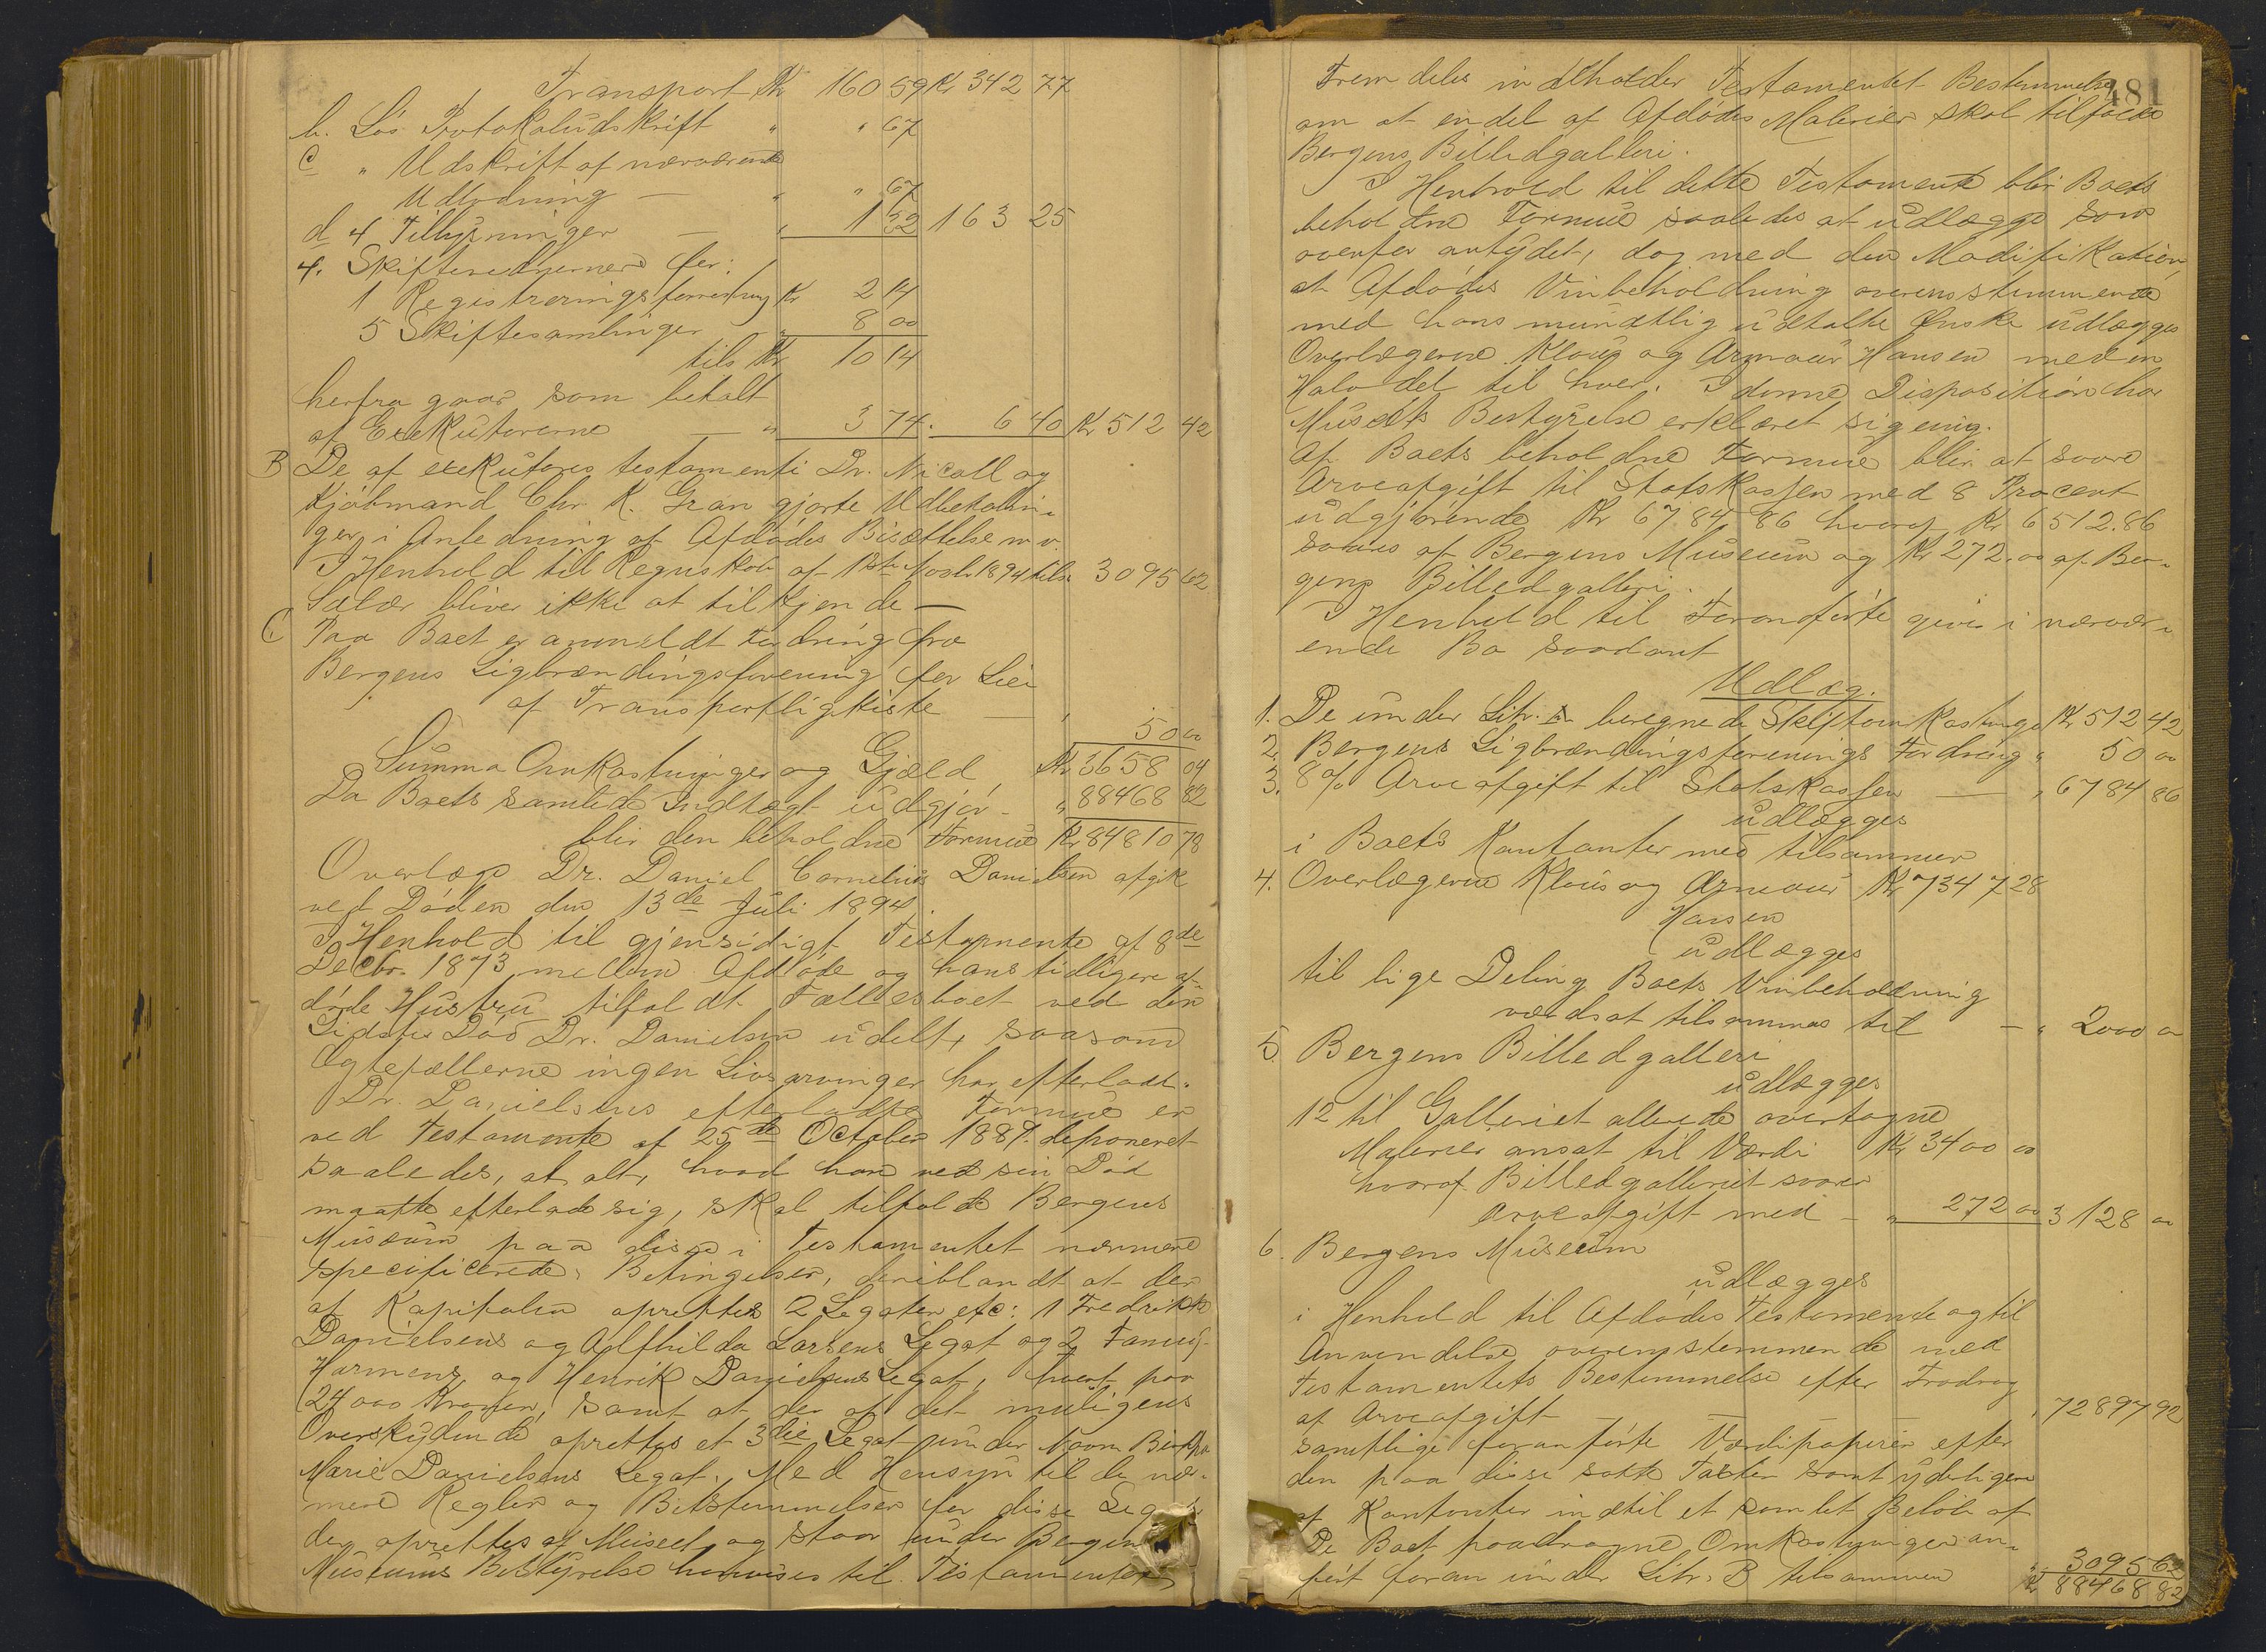 Transport Kr 160 59 Kr 342 77
b. Løs Protokoludskrift " " 67
c " Udskrift af nærværende
Udlodning — " " 67
d 4 Tillysninger — " 1 32 163 25
4. Skifterednerne for:
1 Registreringsforretning Kr 2 14
5 Skiftesamlinger " 8 00
tils Kr 10 14
herfra gaar som betalt
af Exekutorerne — " 3 74 . 6 40 Kr 512 42
B De af exekutores testamenti Dr. Nicoll og
Kjøbmand Chr. K. Gran gjorte Udbetalin-
ger i Anledning af Afdødes Bisættelse m.v.
I Henhold til Regnskab af 1ste Novbr 1894 tils. 3095 62
Salær bliver ikke at tilkjende —
C. Paa Boet er anmeldt Fordring fra
Bergens Ligbrændingsforening for Leie
af Transportligkiste — " 50 00
Summa Omkostninger og Gjæld Kr 3658 04
Da Boets samlede Indtægt udgjør - " 88468 82
blir den beholdne Formue Kr 84810 78
Overlæge Dr. Daniel Cornelius Danielsen afgik
ved Døden den 13de Juli 1894.
I Henhold til gjensidigt Testamente af 8de
Decbr. 1873 mellem Afdøde og hans tidligere af-
døde Hustru tilfaldt Fællesboet ved den
Sidstes Død Dr. Danielsen udelt, saasom
Ægtefællerne ingen Livsarvinger har efterladt.
Dr. Danielsens efterladte Formue er
ved Testamente af 25de October 1889 deponeret
saaledes, at alt, hvad han ved sin Død
maatte efterlade sig, skal tilfalde Bergens
Museum paa disse i Testamentet nærmere
specificerede Betingelser, deriblandt at der
af Kapitalen oprettes 2 Legater etc: 1 Fredrikke
Danielsens og Alfhilda Larsens Legat og 2 Fanny
Harmens og Henrik Danielsens Legat, hvert paa
24000 Kroner, samt at der af det muligens
Overskydende oprettes et 3die Legat under Navn
Marie Danielsens Legat. Med Hensyn til de nær-
mere Regler og Bestemmelser for disse Legater
der oprettes af Museet og staar under Bergens
Museums Bestyrelse henvises til Testamentet.
481
Fremdeles indeholder Testamentet Bestemmelse
om at endel af Afdødes Malerier skal tilfalde
Bergens Billedgalleri.
I Henhold til dette Testamente blir Boets
beholdne Formue saaledes at udlægge som
ovenfor antydet, dog med den Modifikation,
at Afdødes Vinbeholdning overensstemmende
med hans mundtlig udtalte Ønske udlægges
Overlægerne Klouy og Armauer Hansen med en
Halvdel til hver. I denne Disposition har
Musæets Bestyrelse erklæret sig enig.
Af Boets beholdne Formue blir at svare
Arveafgift til Statskassen med 8 Procent
udgjørende Kr 6784 86 hvoraf Kr 6512.86
svares af Bergens Museum og Kr 272.00 af Ber-
gens Billedgalleri.
I Henhold til Foranførte gives i nærvær-
ende Bo saadant
Udlæg.
1. De under Litr. A beregnede Skifteomkostninger Kr 512 42
2. Bergens Ligbrændingsforenings Fordring " 50 00
3. 8% Arveafgift til Statskassen — " 6784 86
udlægges
i Boets Kontanter med tilsammen
4. Overlægerne Klouy og Armauer Kr 7347 28
Hansen
udlægges
til lige Deling Boets Vinbeholdning
værdsat tilsammen til — " 2000 00
5. Bergens Billedgalleri
udlægges
12 til Galleriet allerede overtagne
Malerier ansat til Værdi Kr 3400 00
hvoraf Billedgalleriet svarer
Arveafgift med - " 272 00 3128 00
6. Bergens Museum
udlægges
i Henhold til Afdødes Testamente og til
Anvendelse overensstemmende med
Testamentets Bestemmelse efter Fradrag
af Arveafgift — " 72897 92
samtlige foranførte Værdipapirer efter
den paa disse satte Taxter samt yderligere
af Kontanter indtil et samlet Beløb af
De Boet paadragne Omkostninger an-
ført foran under Litr. B tilsammen " 3095 62
Kr 88468 82